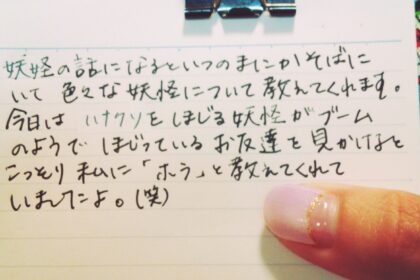 妖怪の話になるといつのまにかそばに
いて色々な妖怪について教えてくれます。
今日はハナクソをほじる妖怪がブーム
のようでほじっているお友達を見かけると
こっそり私に「ホラ」と教えてくれて
いましたよ。(笑)